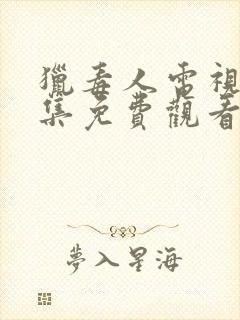 獵毒人電視
集免費觀看
夢入星海